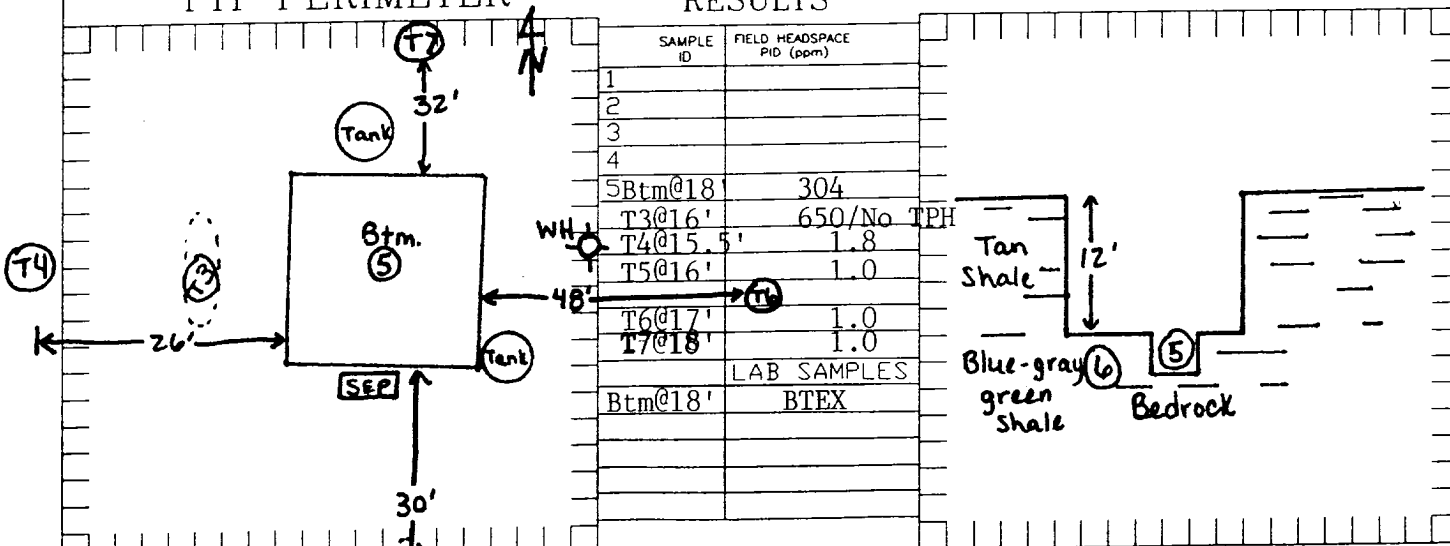 PIT PERIMETER
T7
N
32'
Tank
Btm.
5
T4
T3
26'
Tank
SEP
30'
WH
48'
T6
RESULTS
SAMPLE ID FIELD HEADSPACE PID (ppm)
1
2
3
4
5Btm@18' 304
T3@16' 650/No TPH
T4@15.5' 1.8
T5@16' 1.0
T6@17' 1.0
T7@18' 1.0
LAB SAMPLES
Btm@18' BTEX
Tan
Shale
12'
5
Blue-gray 6
green
Shale
Bedrock